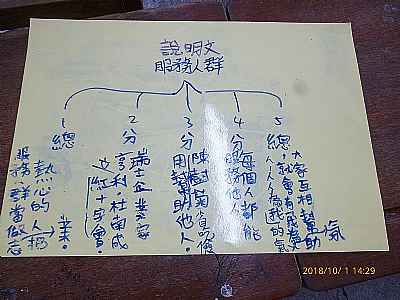 說明文
服務人群
1
總
熱心的人把
服務 群當做志
業。
2
分
瑞士企業家
亨利·杜南成
立紅十字會。
3
分
陳樹菊省吃儉
用幫助他人。
4
分
每個人都能
服務他人。
5
總
大家互相幫助
就會有
人人為 的氣
氛
2018/10/1 14:29